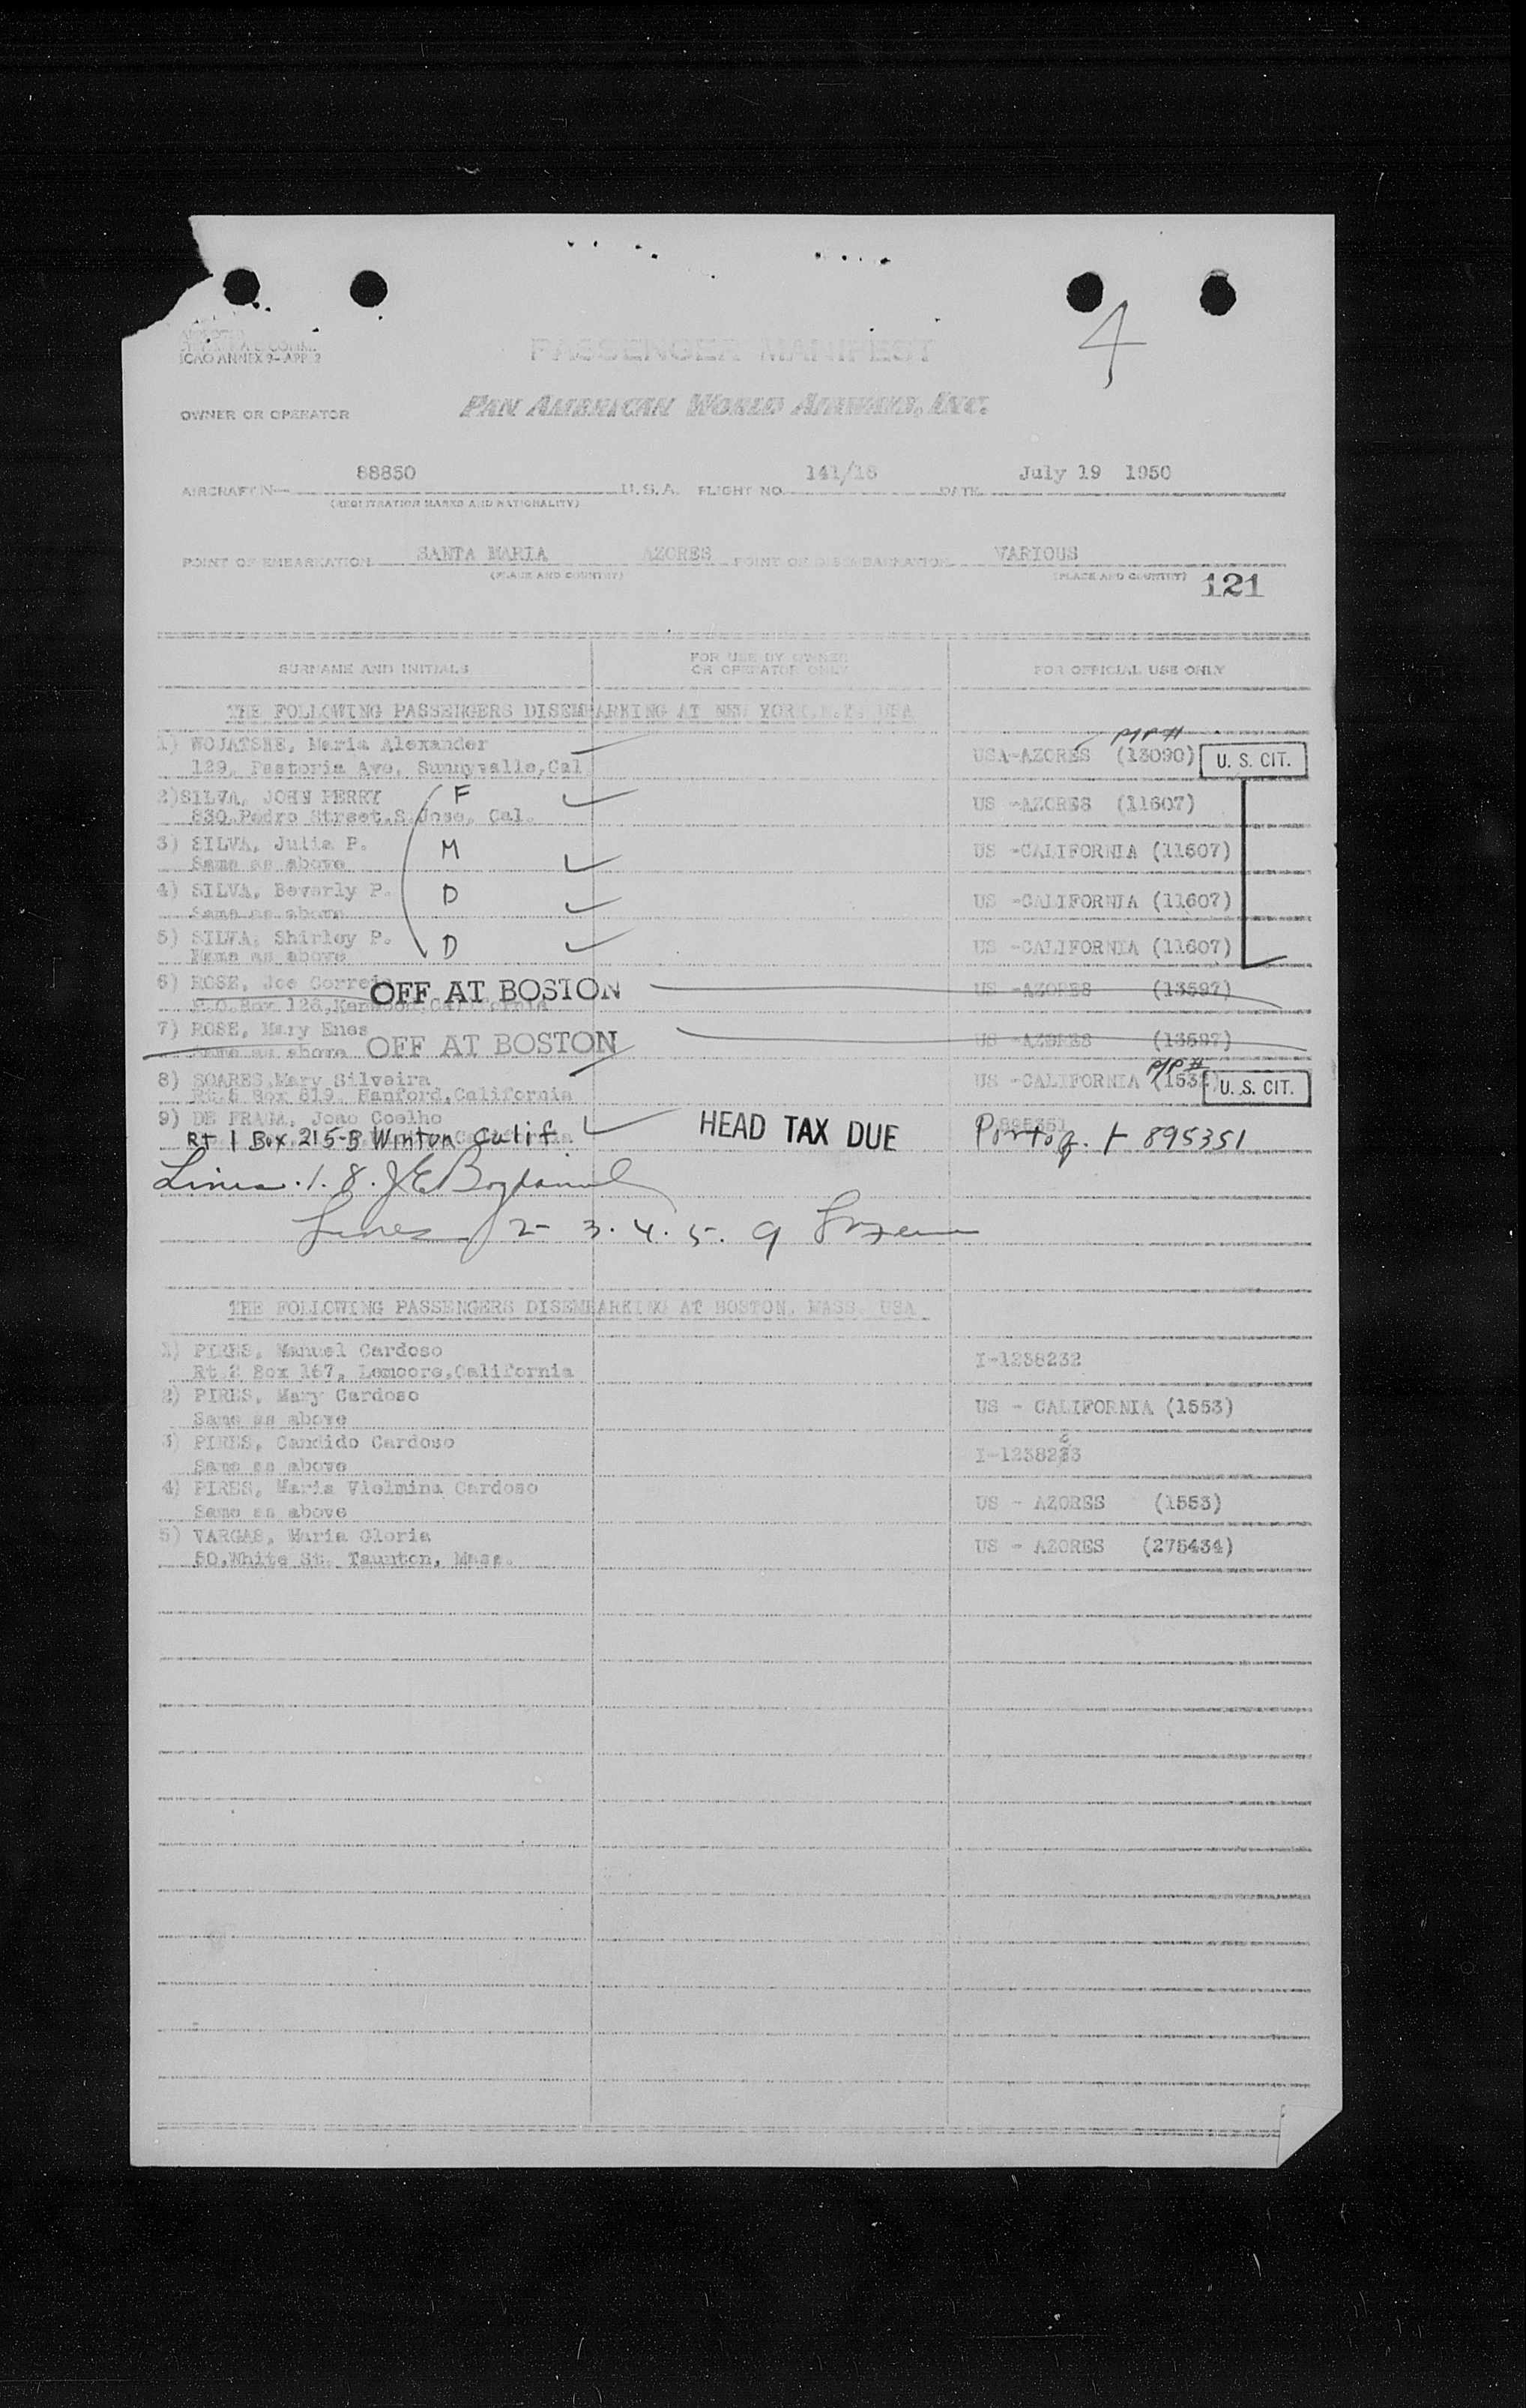 ICAO ANNEX 9-APP. 2
4
PASSENGER MANIFEST
OWNER OR OPERATOR PAN AMERICAN WORLD AIRWAYS, INC.
88850 141/18 July 19 1950
AIRCRAFT N- U.S.A. FLIGHT NO. DATE
(REGISTRATION MARKS AND NATIONALITY)
POINT OF EMBARKATION SANTA MARIA AZORES POINT OF DISEMBARKATION VARIOUS
(PLACE AND COUNTRY) (PLACE AND COUNTRY)
121
SURNAME AND INITIALS FOR USE BY OWNER OR OPERATOR ONLY FOR OFFICIAL USE ONLY
THE FOLLOWING PASSENGERS DISEMBARKING AT NEW YORK,N.Y. USA
P/P #
1) WOJATSHE, Maria Alexander USA-AZORES (13090) U. S. CIT.
129, Pastoria Ave, Sunnyvalle,Cal
2)SILVA, JOHN PERRY F US -AZORES (11607)
830,Pedro Street,S.Jose, Cal.
3) SILVA, Julia P. M US -CALIFORNIA (11607)
Same as above
4) SILVA, Beverly P. D US -CALIFORNIA (11607)
Same as above
5) SILVA, Shirley P. D US -CALIFORNIA (11607)
Same as above
6) ROSE, Joe Correia OFF AT BOSTON US -AZORES (13597)
P.O.Box 126, California
7) ROSE, Mary Enes OFF AT BOSTON US -AZORES (13597)
Same as above
P/P #
8) SOARES,Mary Silveira US -CALIFORNIA U. S. CIT.
Rt.5 Box 819, Hanford,California
9) DE FRAGA, Joao Coelho HEAD TAX DUE 895351
Rt 1 Box 215-B Winton Calif Portog. + 895351
Lines. 1. 8. J E
Lines 2- 3. 4. 5. 9
THE FOLLOWING PASSENGERS DISEMBARKING AT BOSTON, MASS. USA
1) PIRES, Manuel Cardoso I-1238232
Rt.2 Box 167, Lemoore,California
2) PIRES, Mary Cardoso US - CALIFORNIA (1553)
Same as above
3) PIRES, Candido Cardoso I-1238233
Same as above
4) PIRES, Maria Vielmina Cardoso US - AZORES (1553)
Same as above
5) VARGAS, Maria Gloria US - AZORES (275434)
50,White St. Taunton, Mass.